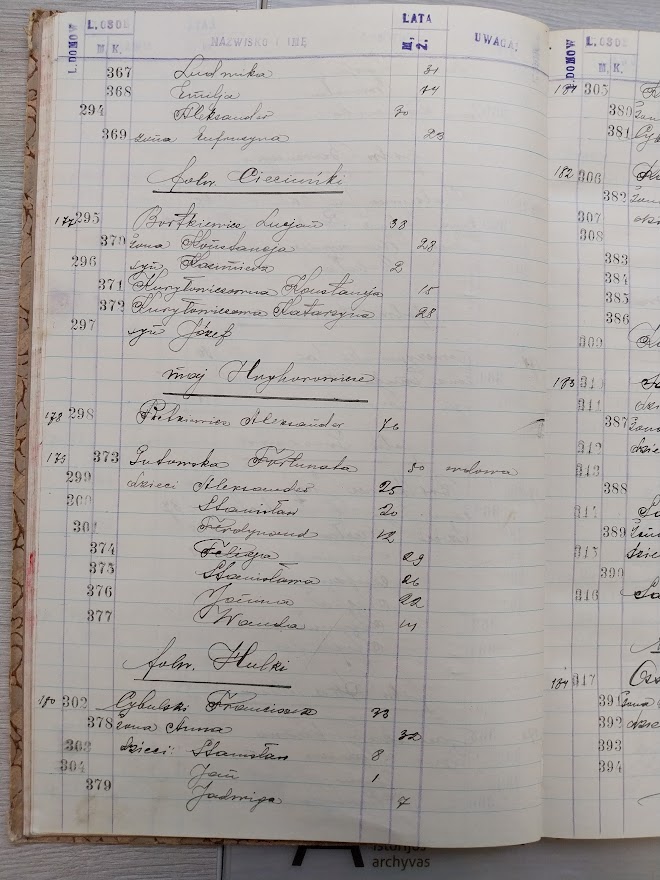 L. DOMÓW L. OSÓB NAZWISKO I IMIĘ LATA UWAGA:
M. K. M. Ż.
367 Ludwika 31
368 Emilja 14
294 Aleksander 30
369 żona Eufrozyna 23
folw. Cieciuński
177 295 Bortkiewicz Lucjan 38
370 żona Konstancja 28
296 syn Kazimierz 2
371 Kuryłowiczówna Konstancja 15
372 Kuryłowiczowa Katarzyna 28
297 syn Józef
maj Hryhorowicze
178 298 Aleksander 76
179 373 Gutowska Fortunata 50 wdowa
299 dzieci Aleksander 25
300 Stanisław 20
301 Ferdynand 12
374 Felicja 29
375 Stanisława 26
376 Janina 22
377 Wanda 14
folw. Hulki
180 302 Cybulski Franciszek 33
378 żona Anna 32
303 dzieci: Stanisław 8
304 Jan 1
379 Jadwiga 7
L. DOMÓW L. OSÓB
M. K.
181 305
380 żona
381
182 306
382 żona
307
308
383
384
385
386
309
183 310
311 dzieci
387 żona
312 dzieci
313
388
314
389 żona
315 dzieci
390
316
184 317
391 żona
392 dzieci
393
394
istorijos
archyvas